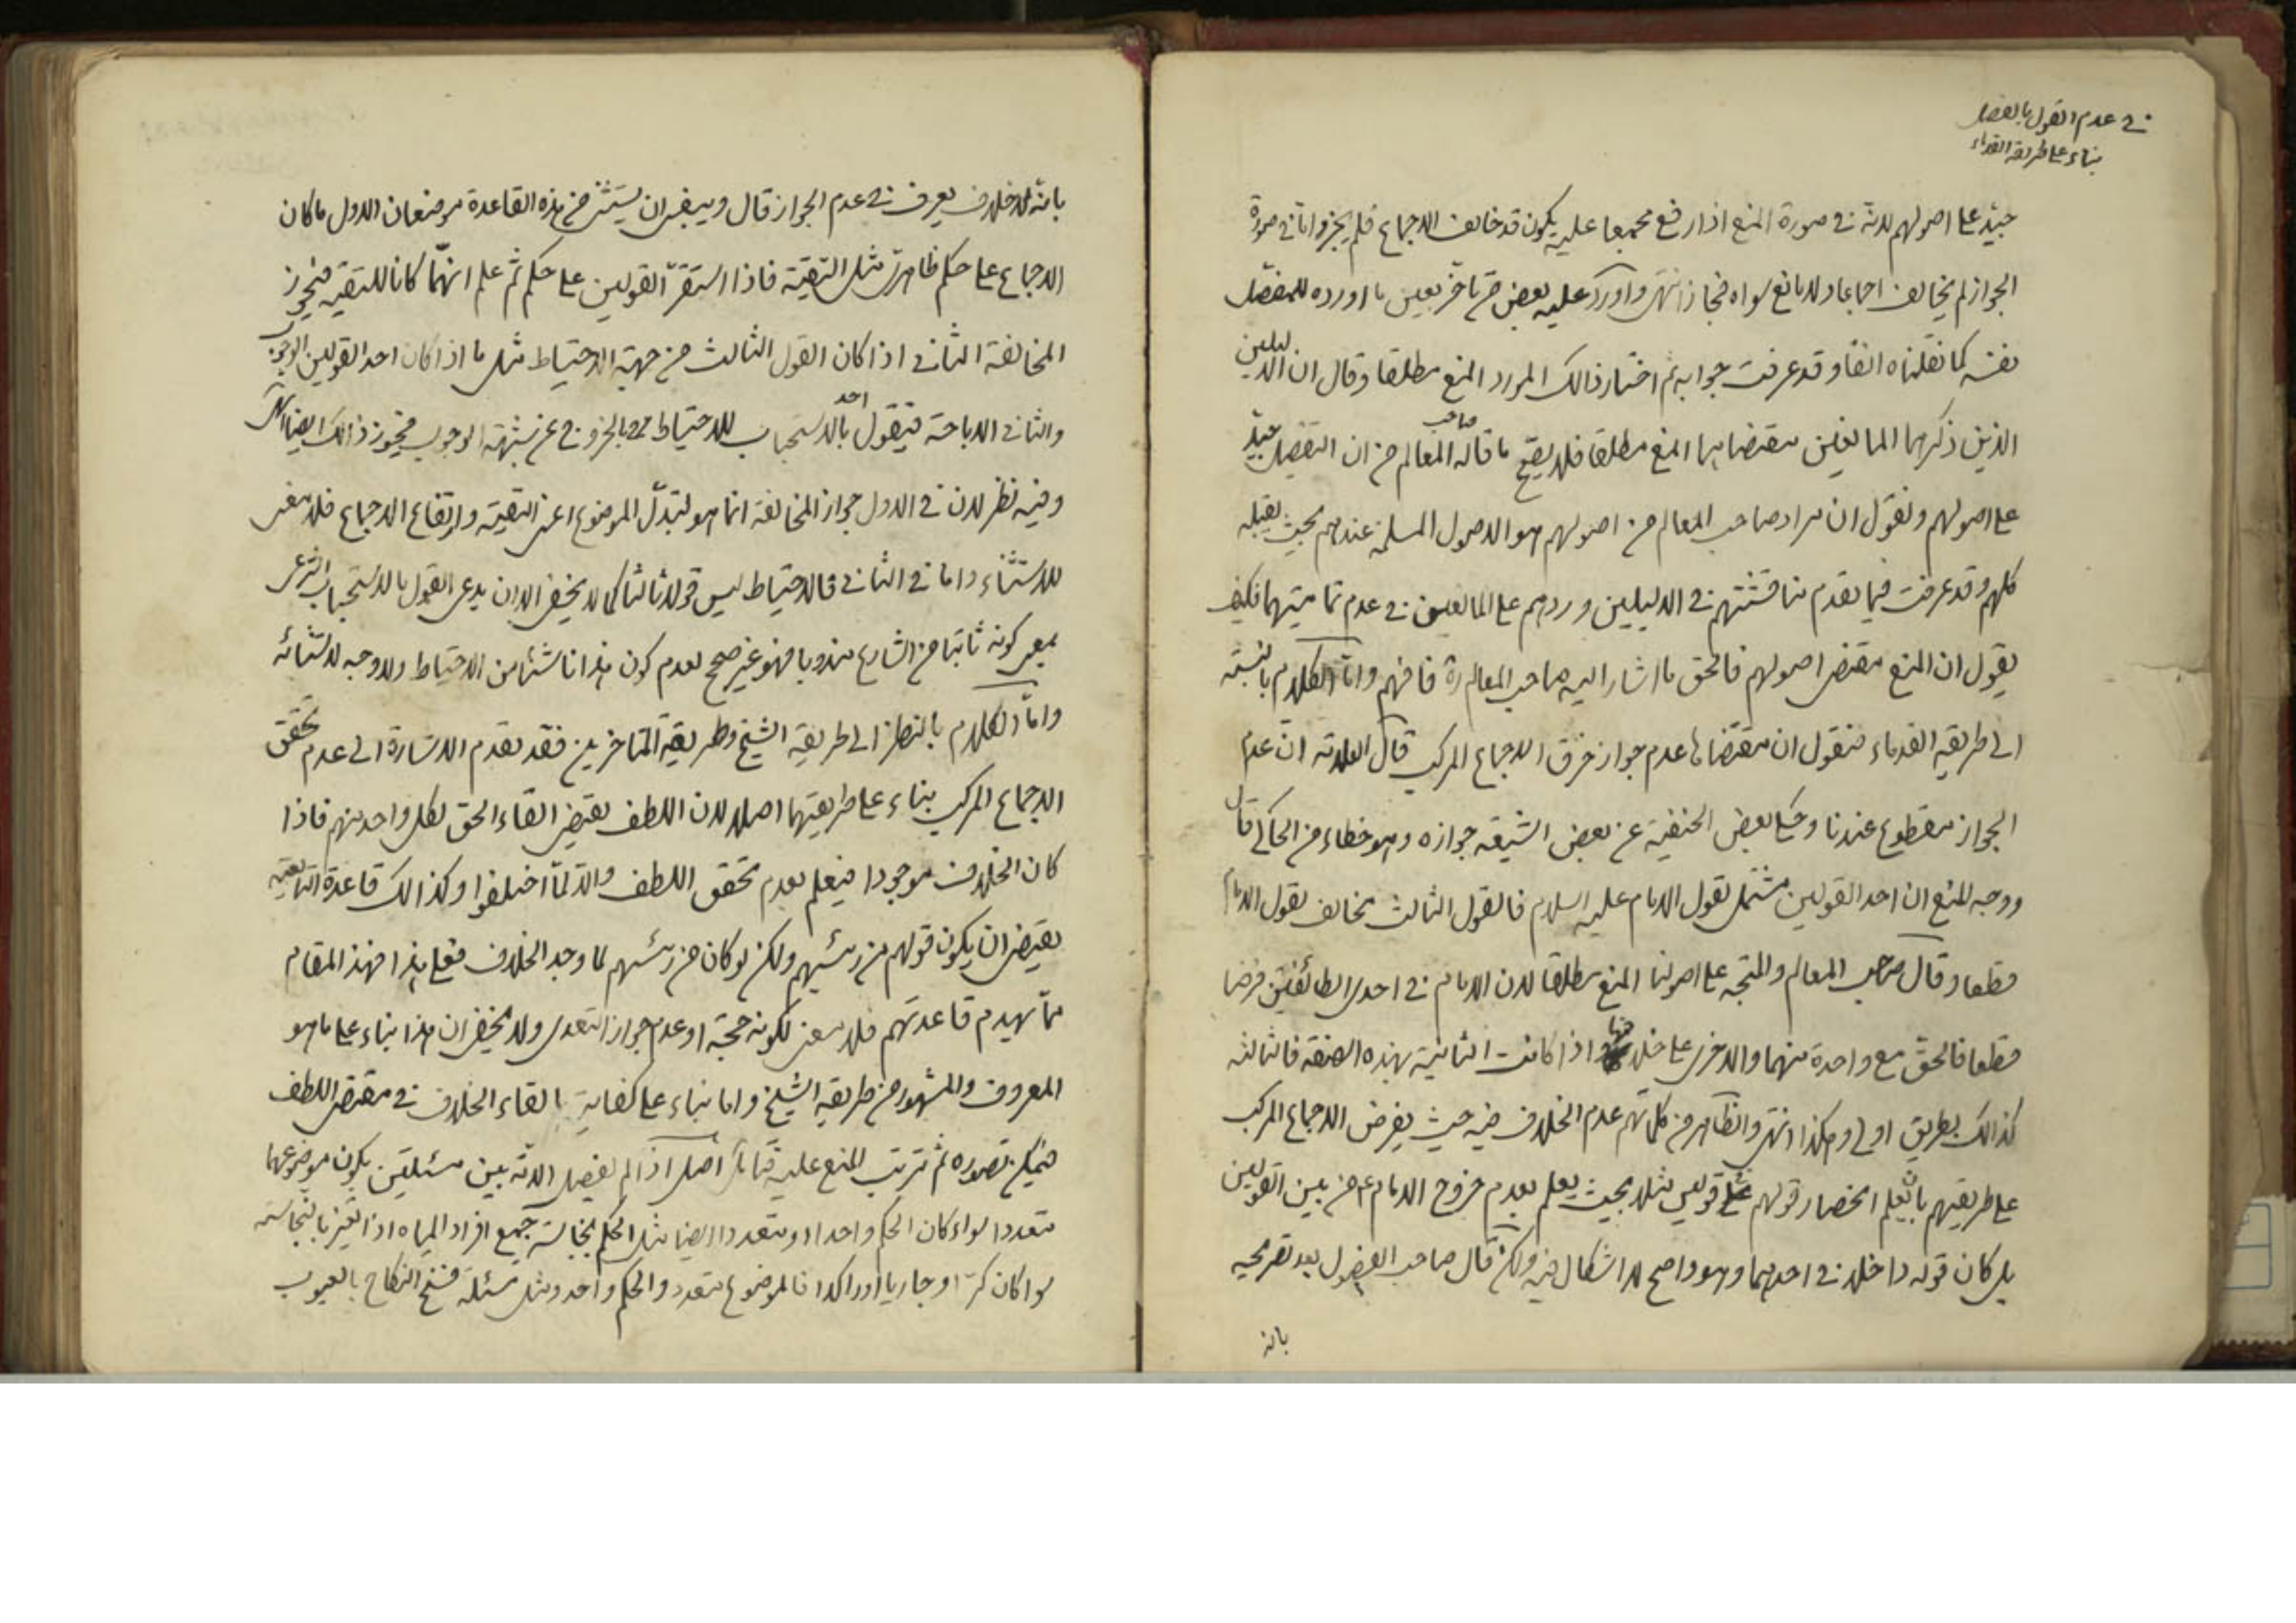 في عدم القول بالفصل
بناء على طريقة القدماء
جيّد على اصولهم لانه في صورة المنع اذا رفع مجمعا عليه يكون قد خالف الاجماع فلم يجز واما في صورة
الجواز لم يخالف اجماعا ولا مانع سواه فجاز انتهى واورد عليه بعض من تاخر بعين ما اورده للمفصل
نفسه كما نقلناه انفا وقد عرفت جوابه ثم اختار ذالك المورد المنع مطلقا وقال ان الدليلين
الذين ذكرهما المانعين مقتضاهما المنع مطلقا فلا يصح ما قاله صاحب المعالم من ان التفصيل جيّد
على اصولهم ونقول ان مراد صاحب المعالم من اصولهم هو الاصول المسلمة عندهم بحيث يقبله
كلهم وقد عرفت فيما تقدم مناقشتهم في الدليلين وردهم على المانعين في عدم تماميتهما فكيف
يقول ان المنع مقتضى اصولهم فالحق ما اشار اليه صاحب المعالم ره فافهم واما الكلام بالنسبة
الى طريقة القدماء فنقول ان مقتضاها عدم جواز خرق الاجماع المركب قال العلامة ان عدم
الجواز مقطوع عندنا وحكى بعض الحنفية عن بعض الشيعة جوازه وهو خطاء من الحاكي قال
ووجه المنع ان احد القولين مشتمل لقول الامام عليه السلام فالقول الثالث مخالف لقول الامام
قطعا وقال صاحب المعالم والمتجه على اصولنا المنع مطلقا لان الامام في احدى الطائفتين فرضا
قطعا فالحق مع واحدة منهما والاخرى على خلافها اذا كانت الثانية بهذه الصفة فالثالثة
كذالك بطريق اولى وهكذا انتهى والظاهر من كلماتهم عدم الخلاف فيه حيث يفرض الاجماع المركب
على طريقتهم بان يعلم انحصار قولهم على قولين مثلا بحيث يعلم بعدم خروج الامام ع من بين القولين
بل كان قوله داخلا في احدهما وهو واضح لا اشكال فيه ولكن قال صاحب الفصول بعد تصريحه
بانه
بانه لا خلاف يعرف في عدم الجواز قال وينبغي ان يستثنى من هذه القاعدة موضعان الاول ما كان
الاجماع على حكم ظاهري مثل التقية فاذا استقر القولين على حكم ثم علم انهما كانا للتقية فيجوز
المخالفة الثاني اذا كان القول الثالث من جهة الاحتياط مثل ما اذا كان احد القولين الوجوب
والثاني الاباحة فيقول احد بالاستحباب للاحتياط بالخروج عن شبهة الوجوب فيجوز ذالك ايضا
وفيه نظر لان في الاول جواز المخالفة انما هو لتبدل الموضوع اعني التقية وارتفاع الاجماع فلا معنى
للاستثناء واما في الثاني فالاحتياط ليس قولا ثالثا كما لا يخفى الا ان يدعى القول بالاستحباب الشرعي
بمعنى كونه ثابتا من الشارع مندوبا فهو غير صحيح لعدم كون هذا ناشئا من الاحتياط ولا وجه لاستثنائه
واما الكلام بالنظر الى طريقة الشيخ وطريقة المتاخرين فقد تقدم الاشارة الى عدم تحقق
الاجماع المركب بناء على طريقتهما اصلا لان اللطف يقتضي القاء الحق لكل واحد منهم فاذا
كان الخلاف موجودا فيعلم بعدم تحقق اللطف والا لما اختلفوا وكذالك قاعدة التابعية
يقتضي ان يكون قولهم من رئيسهم ولكن لو كان من رئيسهم لما وجد الخلاف فعلى هذا فهذا المقام
مما يهدم قاعدتهم فلا معنى لكونه حجة او عدم جواز التعدى ولا يخفى ان هذا بناء على ما هو
المعروف والمشهور من طريقة الشيخ واما بناء على كفاية القاء الخلاف في مقتضى اللطف
فيمكن تصوره ثم ترتب المنع عليه فتامل اصل اذا لم يفصل الامة بين مسئلتين يكون موضوعهما
متعددا سواء كان الحكم واحدا او متعددا ايضا مثل الحكم بنجاسة جميع افراد المياه اذا تغير بالنجاسة
سواء كان كرّا او جاريا او راكدا فالموضوع متعدد والحكم واحد ومثل مسئلة فسخ النكاح بالعيوب